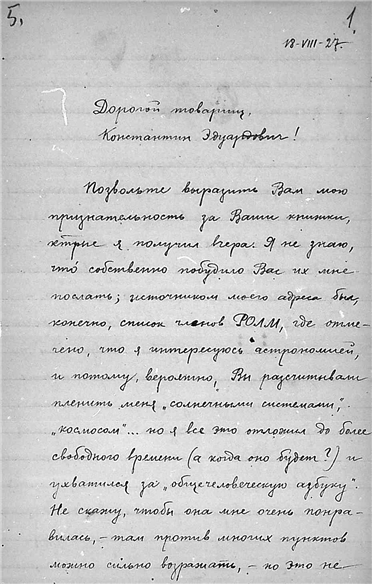 5.
1.
18-VIII-27.
Дорогой товарищ,
Константин Эдуардович!
Позвольте выразить Вам мою
признательность за Ваши книжки,
ктрые я получил вчера. Я не знаю,
что собственно побудило Вас их мне
послать; источником моего адреса был,
конечно, список членов РОЛМ, где отме-
чено, что я интересуюсь астрономией,
и потому, вероятно, Вы разсчитывали
пленить меня „солнечными системами",
„космосом"... но я все это отложил до более
свободного времени (а когда оно будет?) и
ухватился за „общечеловеческую азбуку".
Не скажу, чтобы она мне очень понра-
вилась, – там против многих пунктов
можно сильно возражать, – но это не